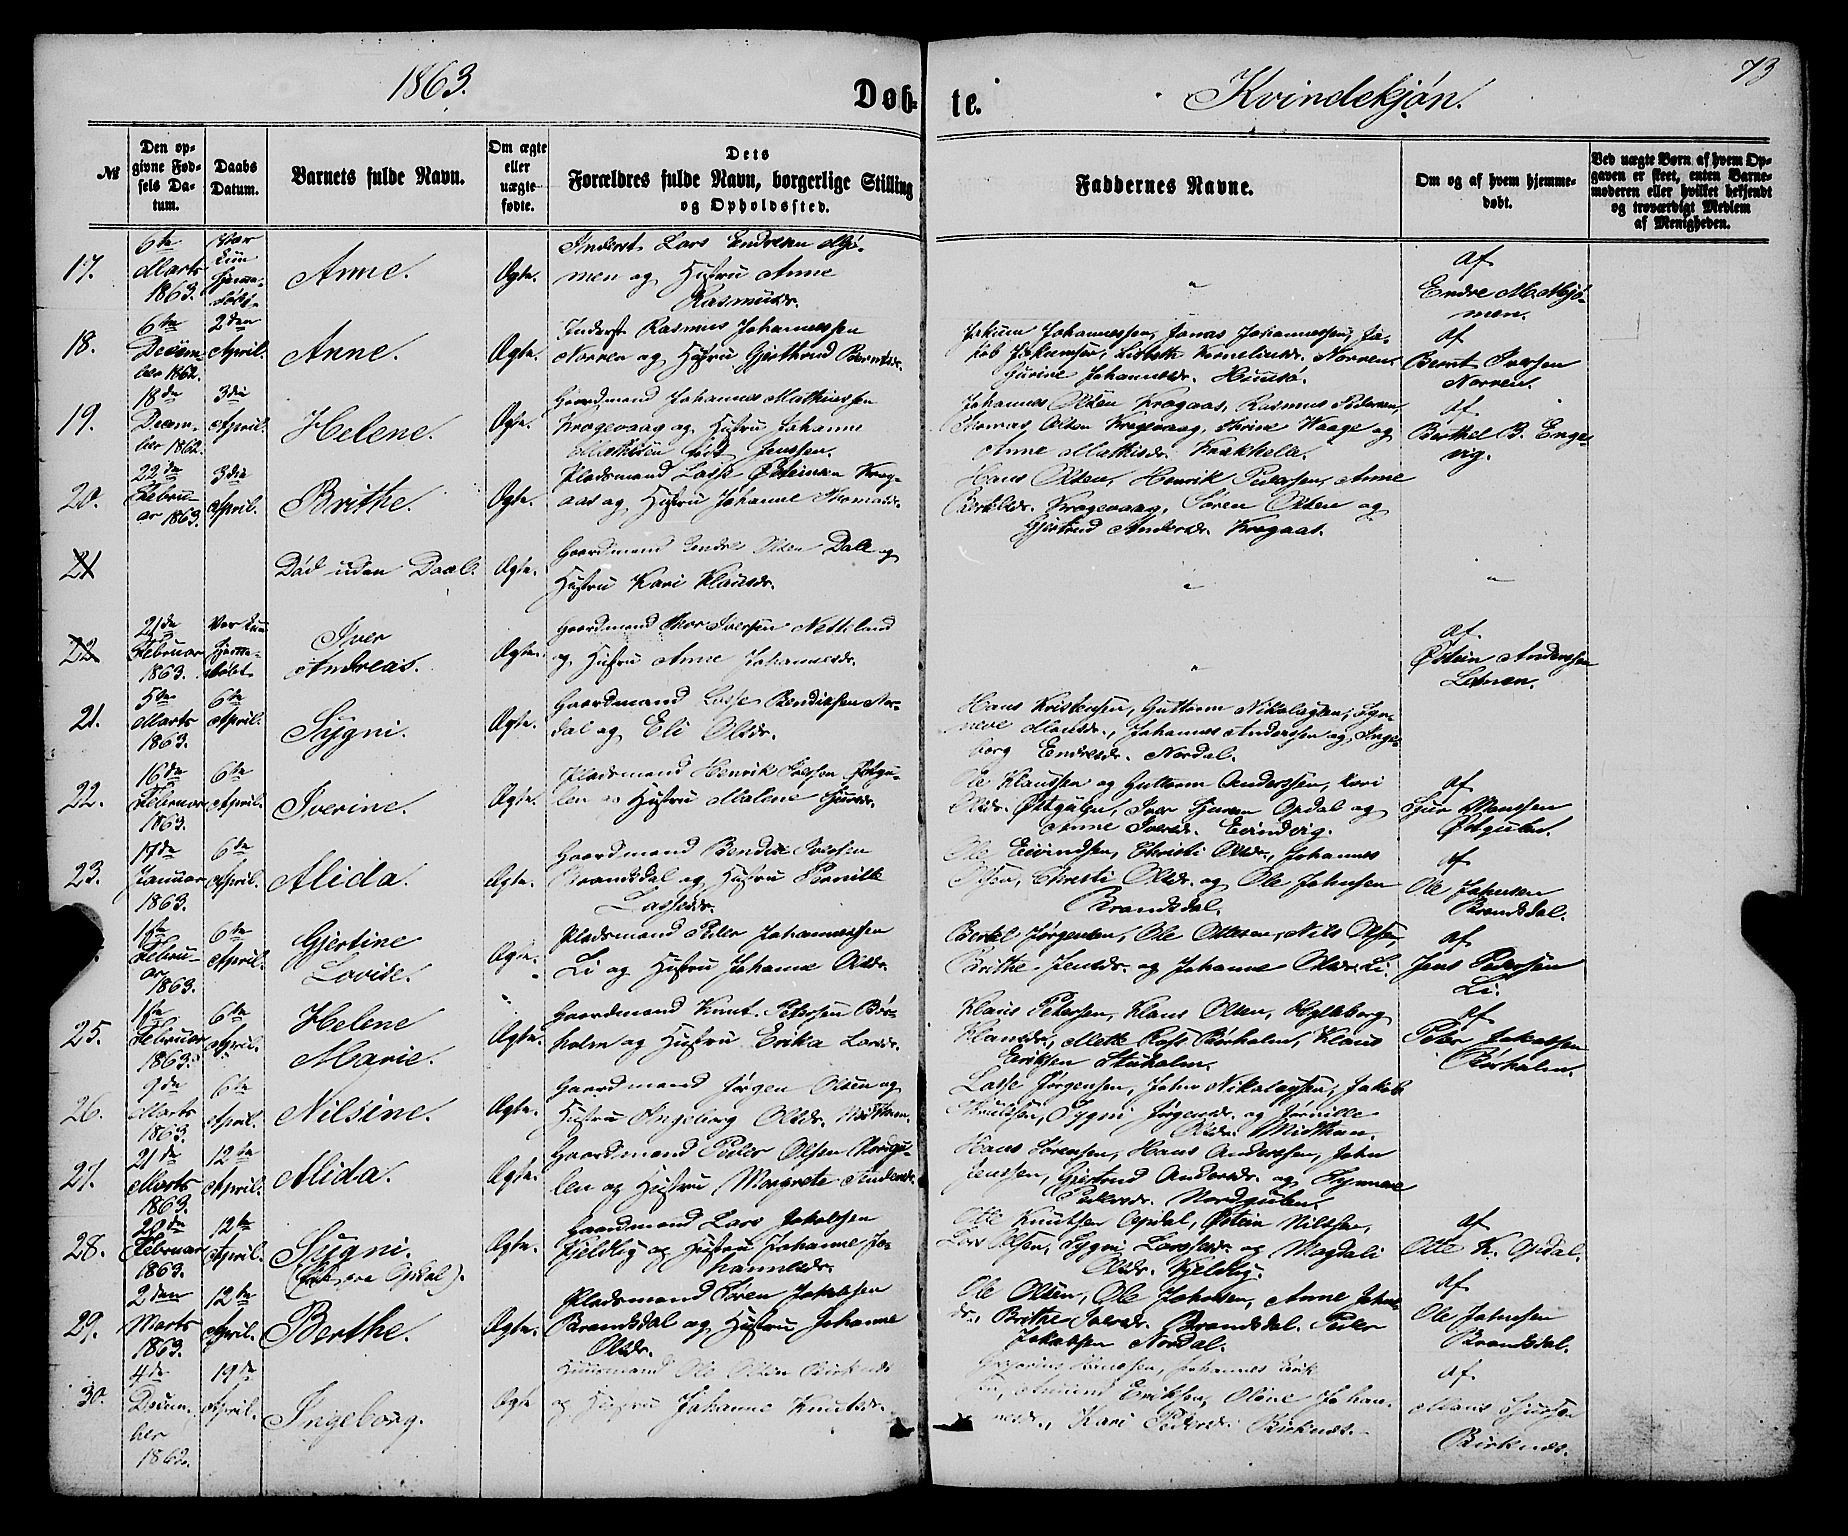 1863.
Døb-
te.
Kvindekjøn.
73
№
Den op-
givne Fød-
sels Da-
tum.
Daabs
Datum.
Barnets fulde Navn.
Om ægte
eller
uægte
fødte.
Dets
Forældres fulde Navn, borgerlige Stilling
og Opholdssted.
Faddernes Navne.
Om og af hvem hjemme-
døbt.
Ved uægte Børn af hvem Op-
gaven er skeet, enten Barne-
moderen eller hvilket bekjendt
og troværdigt Medlem
af Menigheden.
17.
6te
Marts
1863.
Var
kun
hjemme-
døbt
Anne.
Ægte.
Inderst Lars Endresen Mjø-
men og Hustru Anne
Rasmusdr.
"
af
Endre M. Mjø-
men.
18.
6te
Decem-
ber 1862.
2den
April.
Anne.
Ægte.
Inderst Rasmus Johannessen
Norven og Hustru Gjertrud Berntsdr.
Jakum Johannessen, Jonas Johannessen, Ja-
kob Jakumsen, Lisbeth Korneliusdr. Norven.
Gurine Johannesdr.
af
Bernt Iversen
Norven.
19.
18de
Decem-
ber 1862.
3die
April.
Helene.
Ægte.
Gaardmand Johannes Mathiassen
Krogevaag og Hustru Johanne
født Jenssen.
Johannes Olsen Krogaas, Rasmus Pedersen,
Thomas Olsen Krogevaag, Waage og
Anne Mathisdr. Krakhella.
af
Berthel B. Enge-
vig.
20.
22de
Febru-
ar 1863.
3die
April.
Brithe.
Ægte.
Pladsmand Lasse Østensen Krog-
aas og Hustru Johanne Thomasdr.
Hans Olsen, Henrik Pedersen, Anne
Krogevaag, Søren Olsen og
Gjertrud Andersdr. Krogaas.
21
Død uden Daab.
Ægte.
Gaardmand Endre Olsen Dale og
Hustru Kari Klausdr.
"
"
22
21de
Februar
1863.
Var kun
hjemme-
døbt
Iver
Andreas.
Ægte.
Gaardmand Iversen Netteland
og Hustru Anne Johannesdr.
"
af
Østein Anderssen
21.
5te
Marts
1863.
6te
April.
Sygni.
Ægte.
Gaardmand Lasse Bendiksen Nor-
dal og Eli Olsdr.
Hans Kristensen, Guttorm Nikolaysen, Syn-
neve Monsdr., Johannes Anderssen og Inge-
borg Endresdr. Nordal.
22.
16de
Februar
1863.
6te
April.
Iverine.
Ægte.
Pladsmand Henrik Iversen Østgu-
len og Hustru Malene Sjursdr.
Ole Klaussen og Guttorm Anderssen, Kari
Olsdr. Østgulen, Iver Sjursen Opdal og
Anne Iversdr. Eivindvig.
af
Sjur Monssen
Østgulen.
23.
17de
Januar
1863.
6te
April.
Alida.
Ægte.
Gaardmand Bendik Iversen
Brandsdal og Hustru Pernille
Lassesdr.
Ole Eivindsen, Christi Olsdr., Johannes
Olsen, Christi Olsdr. og Ole Johnsen
Brandsdal.
af
Ole Johnsen
Brandsdal.
1ste
Febru-
ar
1863.
6te
April.
Gjertine
Lovise.
Ægte.
Pladsmand Peder Johannessen
Li og Hustru Johanne Olsdr.
Bertel Jørgensen, Ole Ottesen, Nils Olsen,
Brithe Jensdr. og Johanne Olsdr. Li.
af
Jens Pedersen
Li.
25.
1ste
Februar
1863.
6te
April.
Helene
Marie.
Ægte.
Gaardmand Knut Petersen Bør-
holm og Hustru Erika Larsdr.
Klaus Petersen, Klaus Olsen, Hylleborg
Klausdr., Mette Ross Børholm, Klaus
Eriksen
af
Peter Jakobsen
Børholm.
26.
9de
Marts
1863.
6te
April.
Nilsine.
Ægte.
Gaardmand Jørgen Olsen og
Hustru Ingeborg Olsdr. Midthun.
Lasse Jørgensen, John Nikolaysen, Jakob
Knutssen, Sygni Jørgensdr. og Pernille
Olsdr. Midthun.
27.
21de
Marts
1863.
12te
April.
Alida.
Ægte.
Gaardmand Peder Olsen Nordgu-
len og Hustru Margrete Andersdr.
Hans Sørensen, Hans Anderssen, John
Jenssen, Gjertrud Andersdr. og Synneve
Pedersdr. Nordgulen.
28.
Februar
1863.
12te
April.
Sygni.
(født paa Opdal).
Ægte.
Gaardmand Lars Jakobsen
Kjeldvig og Hustru Johanne Jo-
hannesdr.
Otte Knutsen Opdal, Østein Nilssen,
Lars Olsen, Sygni Larsdr. og Magdali
Olsdr. Kjeldvig.
af
Otte K. Opdal.
29.
2den
Marts
1863.
12te
April.
Berthe.
Ægte.
Pladsmand Søren Jakobsen
Brandsdal og Hustru Johanne
Olsdr.
Ole Olsen, Ole Johnsen, Anne Johns-
dr., Brithe Iversdr. Brandsdal. Peder
Jakobsen Nordal.
af
Ole Johnsen
Brandsdal.
30.
4de
Decem-
ber
1862.
19de
April.
Ingeborg.
Ægte
Huusmand Ole Olsen Birknes
og Hustru Johanne Knutsdr.
Johannes Erik-
sen, Amund Eriksen, Oline Johan-
nesdr., Kari Pedersdr. Birknes.
af
Mons Sjursen
Birknes.